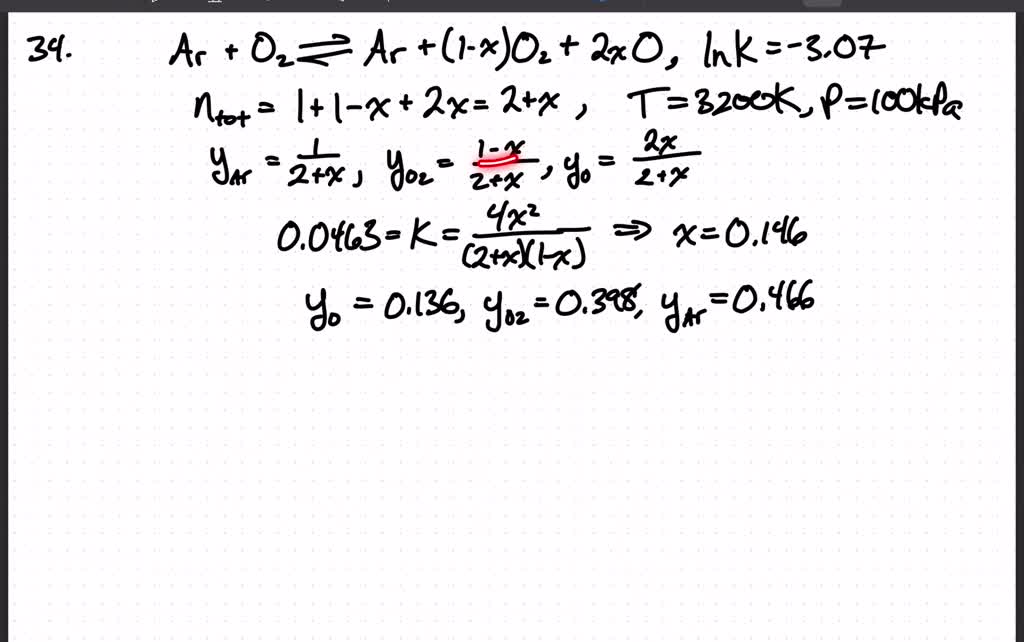 34. Ar + O₂ ⇌ Ar + (1-x)O₂ + 2xO, lnK = -3.07
n_tot = 1+1-x+2x = 2+x, T=3200K, P=100kPa
y_Ar = 1/(2+x), y_O2 = (1-x)/(2+x), y_O = 2x/(2+x)
0.0463 = K = 4x²/((2+x)(1-x)) ⇒ x=0.146
y_O = 0.136, y_O2 = 0.398, y_Ar = 0.466